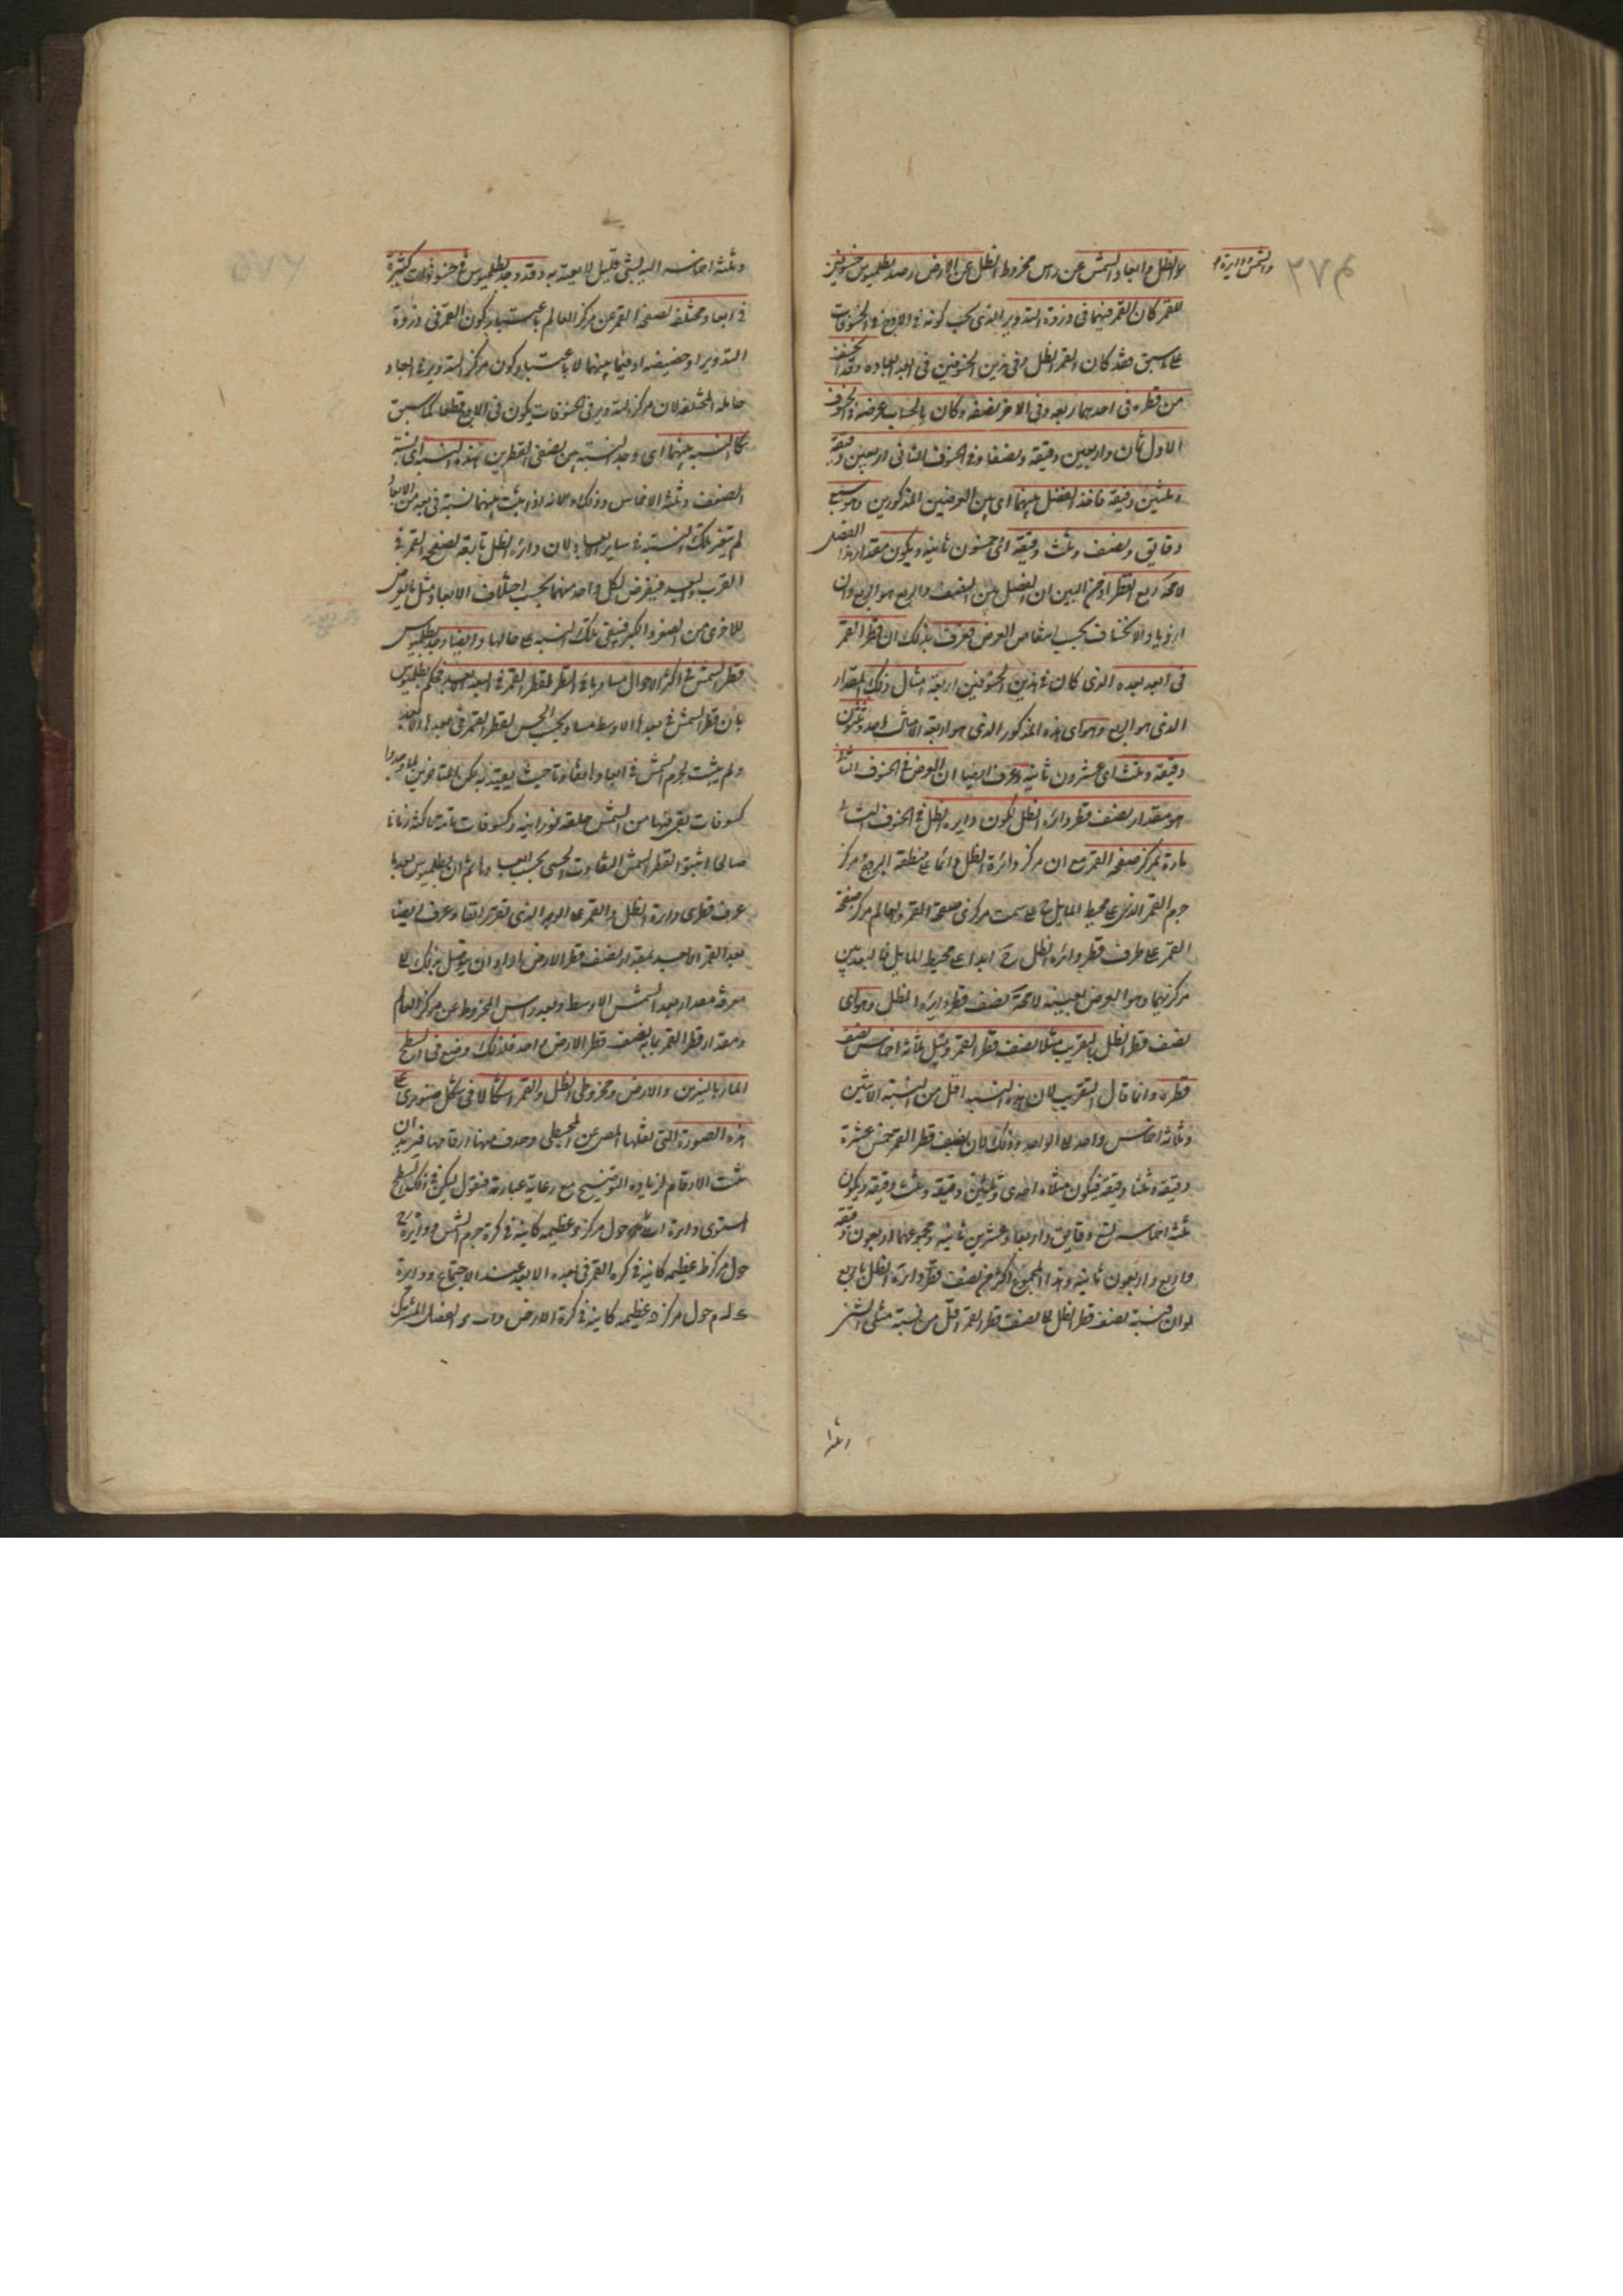 والشمس ودايرة
م ٣٧
والظل وابعاد الشمس عن راس مخروط الظل عن الارض رصد بطلميوس خسوفين
للقمر كان القمر فيهما فى ذروة التدوير الذى يجب كونه فى الاوج فى الخسوفات
على ما سبق فقد كان القمر والظل فى هذين الخسوفين فى البعد الابعد وقد انخسف
من قطره فى احدهما ربعه وفى الاخر نصفه وكان بالحساب عرضه فى الخسوف
الاول ثمان واربعين دقيقة ونصفا وفى الخسوف الثانى اربعين دقيقة
وثلثين دقيقة فاخذ الفضل بينهما اى بين العرضين المذكورين وهو سبع
دقايق ونصف وثلث دقيقة اى خمسون ثانية ويكون مقدار هذا الفضل
لا محة ربع القطر اذ من البين ان الفضل بين النصف والربع هو الربع وان
ازدياد الانخساف بحسب انتقاص العرض فعرف بذلك ان قطر القمر
فى ابعد بعده الذى كان فى هذين الخسوفين اربعة امثال ذلك المقدار
الذى هو الربع وهو اى هذا المذكور الذى هو اربعة الامثال احد وثلثون
دقيقة وثلث اى عشرون ثانية وعرف ايضا ان العرض فى الخسوف الثانى
هو مقدار نصف قطر دائرة الظل لكون دايرة الظل فى الخسوف الثانى
مارة بمركز صفحة القمر مع ان مركز دائرة الظل دائما على منطقة البروج ومركز
جرم القمر الذى على محيط المايل على سمت مركزى صفحة القمر والعالم مركز صفحة
القمر على طرف قطر دائرة الظل ابدا على محيط المايل فالبعد بين
مركزيهما وهو العرض بعينه لا محة نصف قطر دايرة الظل وهو اى
نصف قطر الظل بالتقريب مثلا نصف قطر القمر ومثل ثلاثة اخماس نصف
قطره وانما قال بالتقريب لان هذه النسبة اقل من نسبة الاثنين
وثلاثة اخماس واحد الى الواحد وذلك لان نصف قطر القمر خمس عشرة
دقيقة وثلثا دقيقة فيكون مثلاه احدى وثلثين دقيقة وثلث دقيقة ويكون
ثلثة اخماسه تسع دقايق واربعا وعشرين ثانية ومجموعهما اربعون دقيقة
واربع واربعون ثانية وهذا المجموع اكثر من نصف قطر دائرة الظل باربع
ثوان فنسبة نصف قطر الظل الى نصف قطر القمر اقل من نسبة مثلى الشئ
وثلثة
وثلثة اخماسه اليه بشئ قليل لا يعتد به وقد وجد بطلميوس فى خسوفات كثيرة
فى ابعاد مختلفة لصفحة القمر عن مركز العالم باعتبار كون القمر فى ذروة
التدوير او حضيضه او فيما بينهما لا باعتبار كون مركز التدوير فى ابعاد
حامله المختلفة لان مركز التدوير فى الخسوفات يكون فى الاوج قطعا كما سبق
تلك النسبة بينهما اى وجد النسبة بين نصفى القطرين هذه النسبة اى نسبة
الضعف وثلثة الاخماس وذلك لانه اذا ثبت بينهما نسبة فى بعد من الابعاد
لم يتغير تلك النسبة فى ساير الابعاد لان دائرة الظل تابعة لصفحة القمر فى
القرب والبعد فيفرض لكل واحد منهما بحسب اختلاف الابعاد مثل ما يعرض
للاخرى من الصغر والكبر فيبقى تلك النسبة على حالها وايضا وجد بطلميوس
قطر الشمس فى اكثر الاحوال مساويا فى النظر لقطر القمر فى البعد الابعد فحكم بطلميوس
بان قطر الشمس فى بعدها الاوسط مساو بحسب الحس لقطر القمر فى بعده الابعد
ولم يثبت لجرم الشمس فى ابعادها تفاوتا حيث يعتد به لكن المتاخرين لما وجدوا
كسوفات بقى فيها من الشمس حلقة نورانية وكسوفات تامة ماكثة زمانا
صالحا اثبتوا لقطر الشمس التفاوت الحسى بحسب ابعادها ثم ان بطلميوس بعد ما
عرف قطرى دايرة الظل والقمر على الوجه الذى تقرر انفا وعرف ايضا
بعد القمر الابعد بمقدار نصف قطر الارض اراد ان يتوصل بذلك الى
معرفة مقدار بعد الشمس الاوسط وبعد راس المخروط عن مركز العالم
ومقدار قطر القمر بما به نصف قطر الارض واحد فلذلك وضع فى السطح
المار بالنيرين والارض ومخروطى الظل والقمر اشكالا فى شكل صنوبرى على
هذه الصورة التى نقلها المص عن المجسطى وحذف منها ارقامها فنريد ان
نثبت الارقام لزيادة التوضيح مع رعاية عبارته فنقول ليكن فى ذلك السطح
المستوى دايرة حول مركز عظيمة كاينة فى كرة جرم الشمس ودايرة
حول مركز ط عظيمة كاينة فى كرة القمر فى بعده الابعد عند الاجتماع ودايرة
حول مركز عظيمة كاينة فى كرة الارض الفصل المشترك